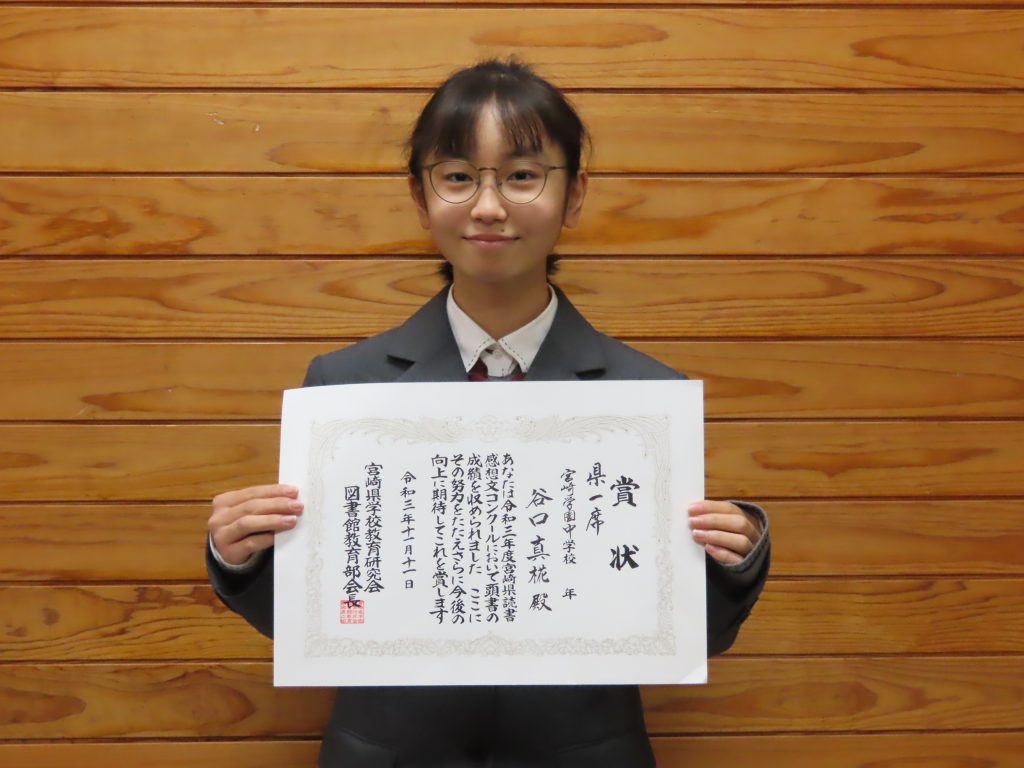 賞状
県一席
宮崎学園中学校 年
谷口真椛殿
あなたは令和三年度宮崎県読書
感想文コンクールにおいて頭書の
成績を収められました ここに
その努力をたたえさらに今後の
向上に期待してこれを賞します
令和三年十一月十一日
宮崎県学校教育研究会
図書館教育部会長